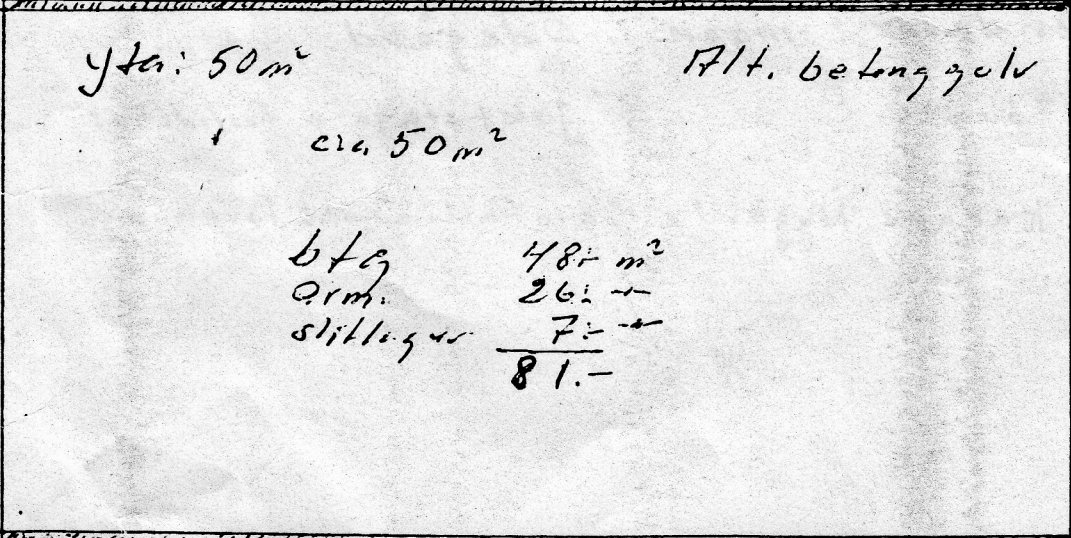 yta: 50 m² Alt. betonggolv
c:a 50 m²
btg 48:- m²
arm. 26:- -"-
slitlager 7:- -"-
81.-